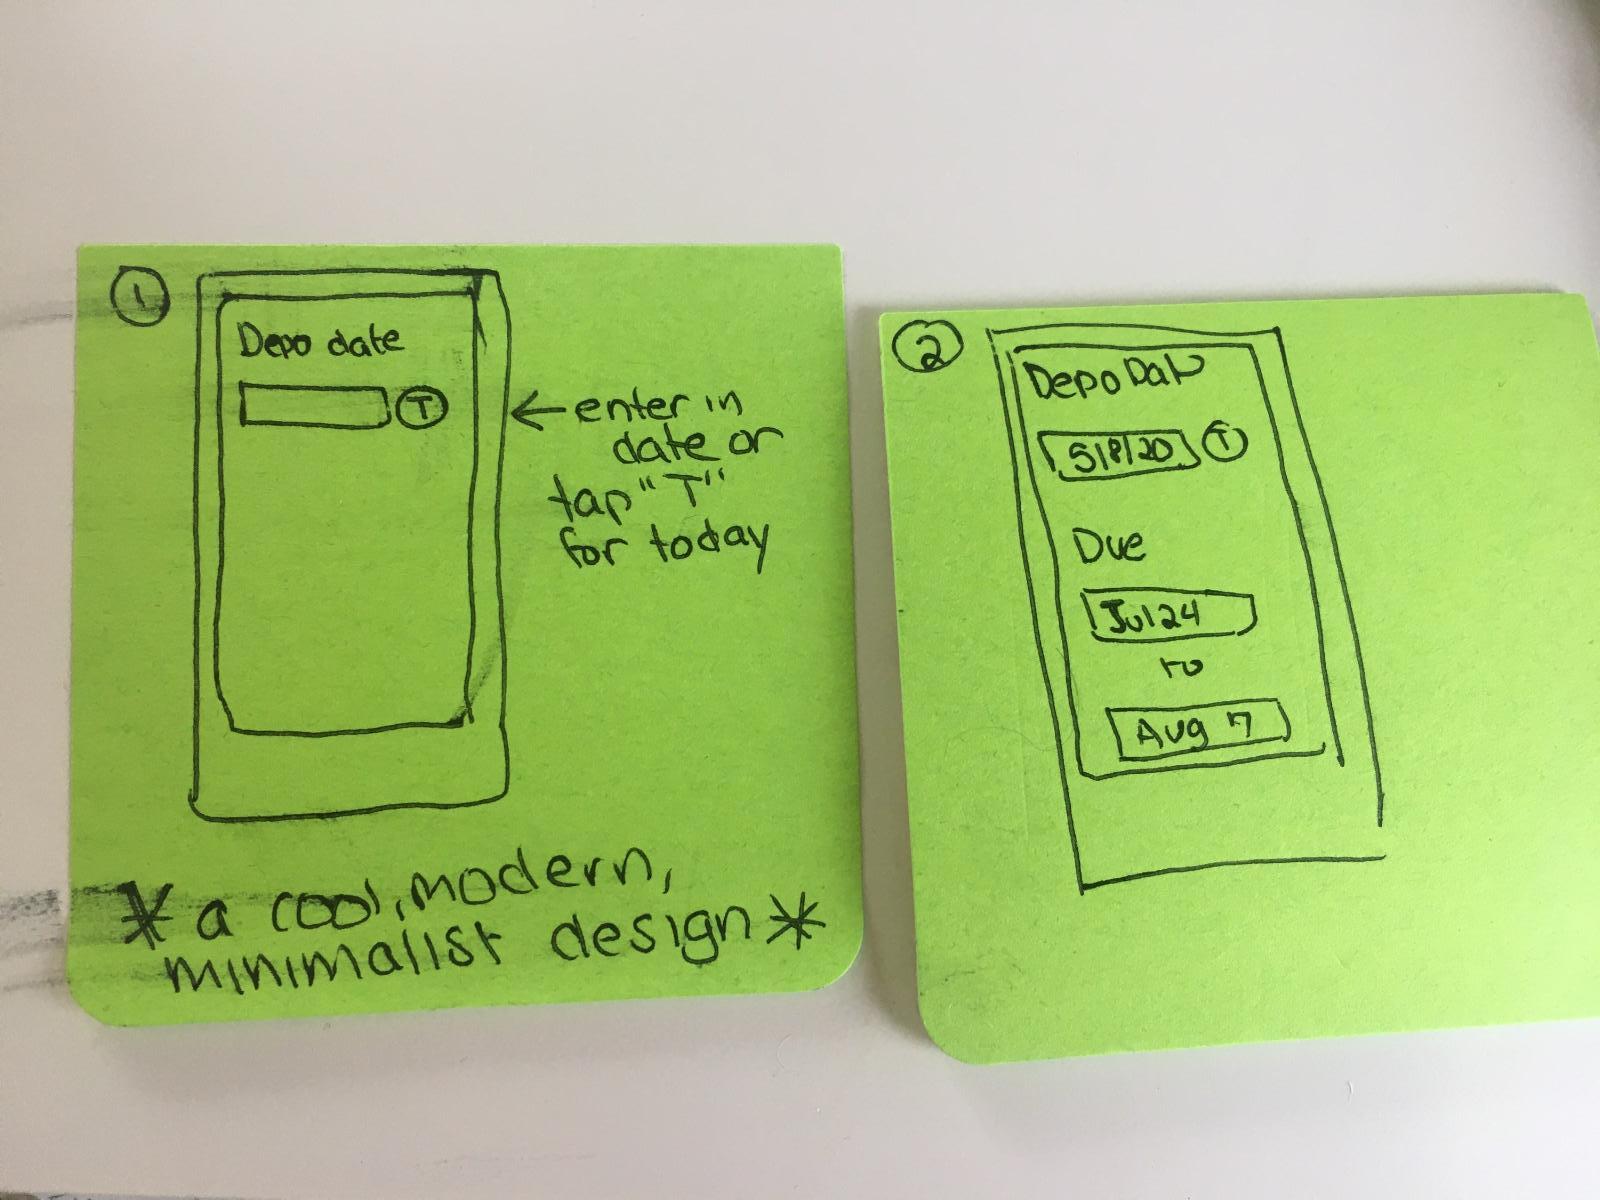 1
Depo date
T
← enter in
date or
tap "T"
for today
* a cool, modern,
minimalist design *
2
Depo Dat
5/8/20 T
Due
Jul 24
to
Aug 7